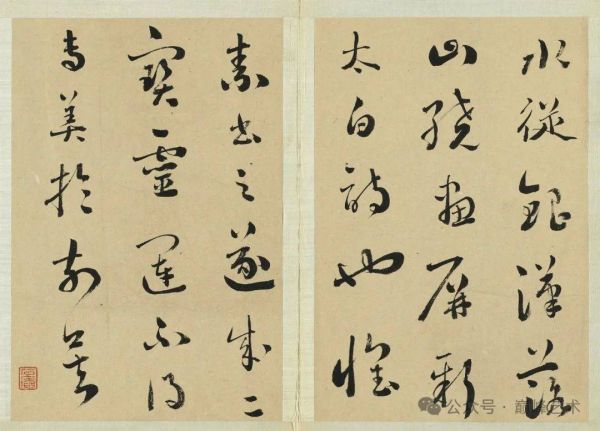 水從銀漢落
山繞畫屏新
太白詩也懷
素書之遂成二
寶靈運不得
專美於前矣
公众号 · 巅峰艺术